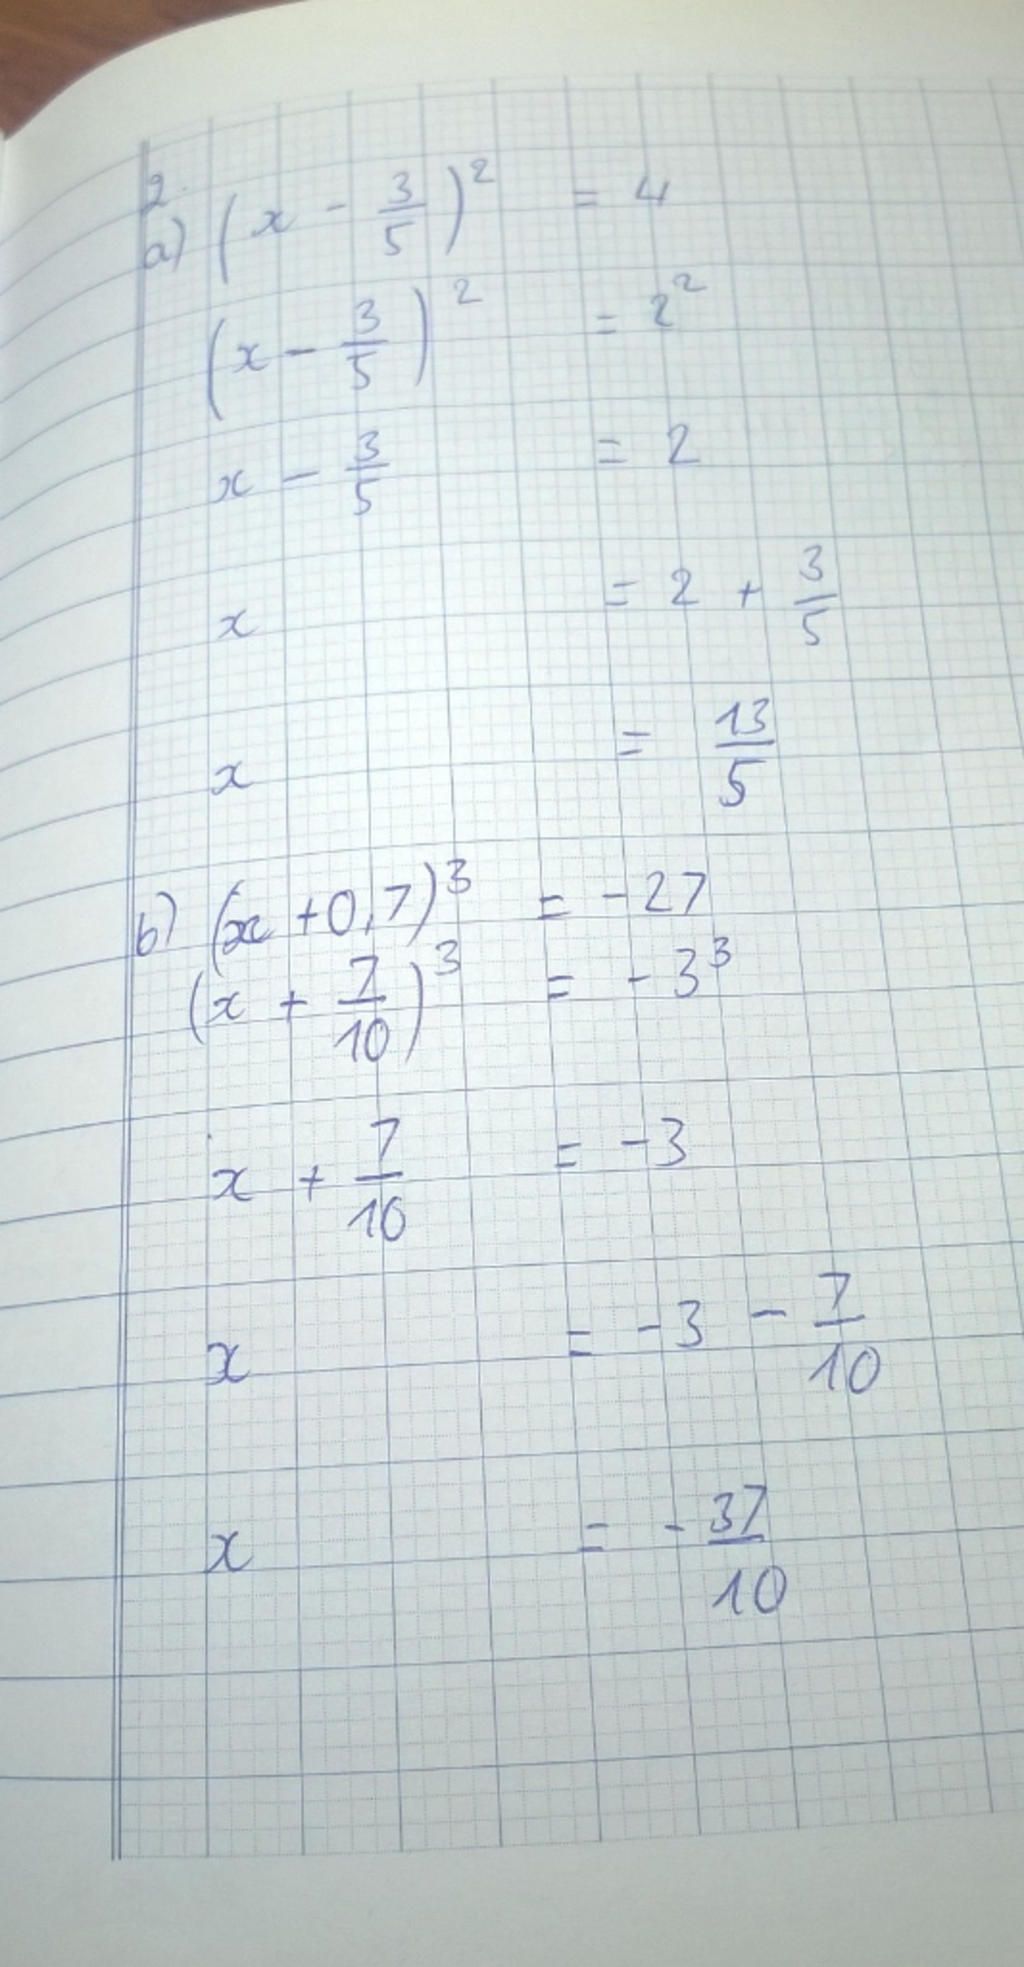 2.
a) (x - 3/5)² = 4
(x - 3/5)² = 2²
x - 3/5 = 2
x = 2 + 3/5
x = 13/5
b) (x + 0,7)³ = -27
(x + 7/10)³ = -3³
x + 7/10 = -3
x = -3 - 7/10
x = -37/10